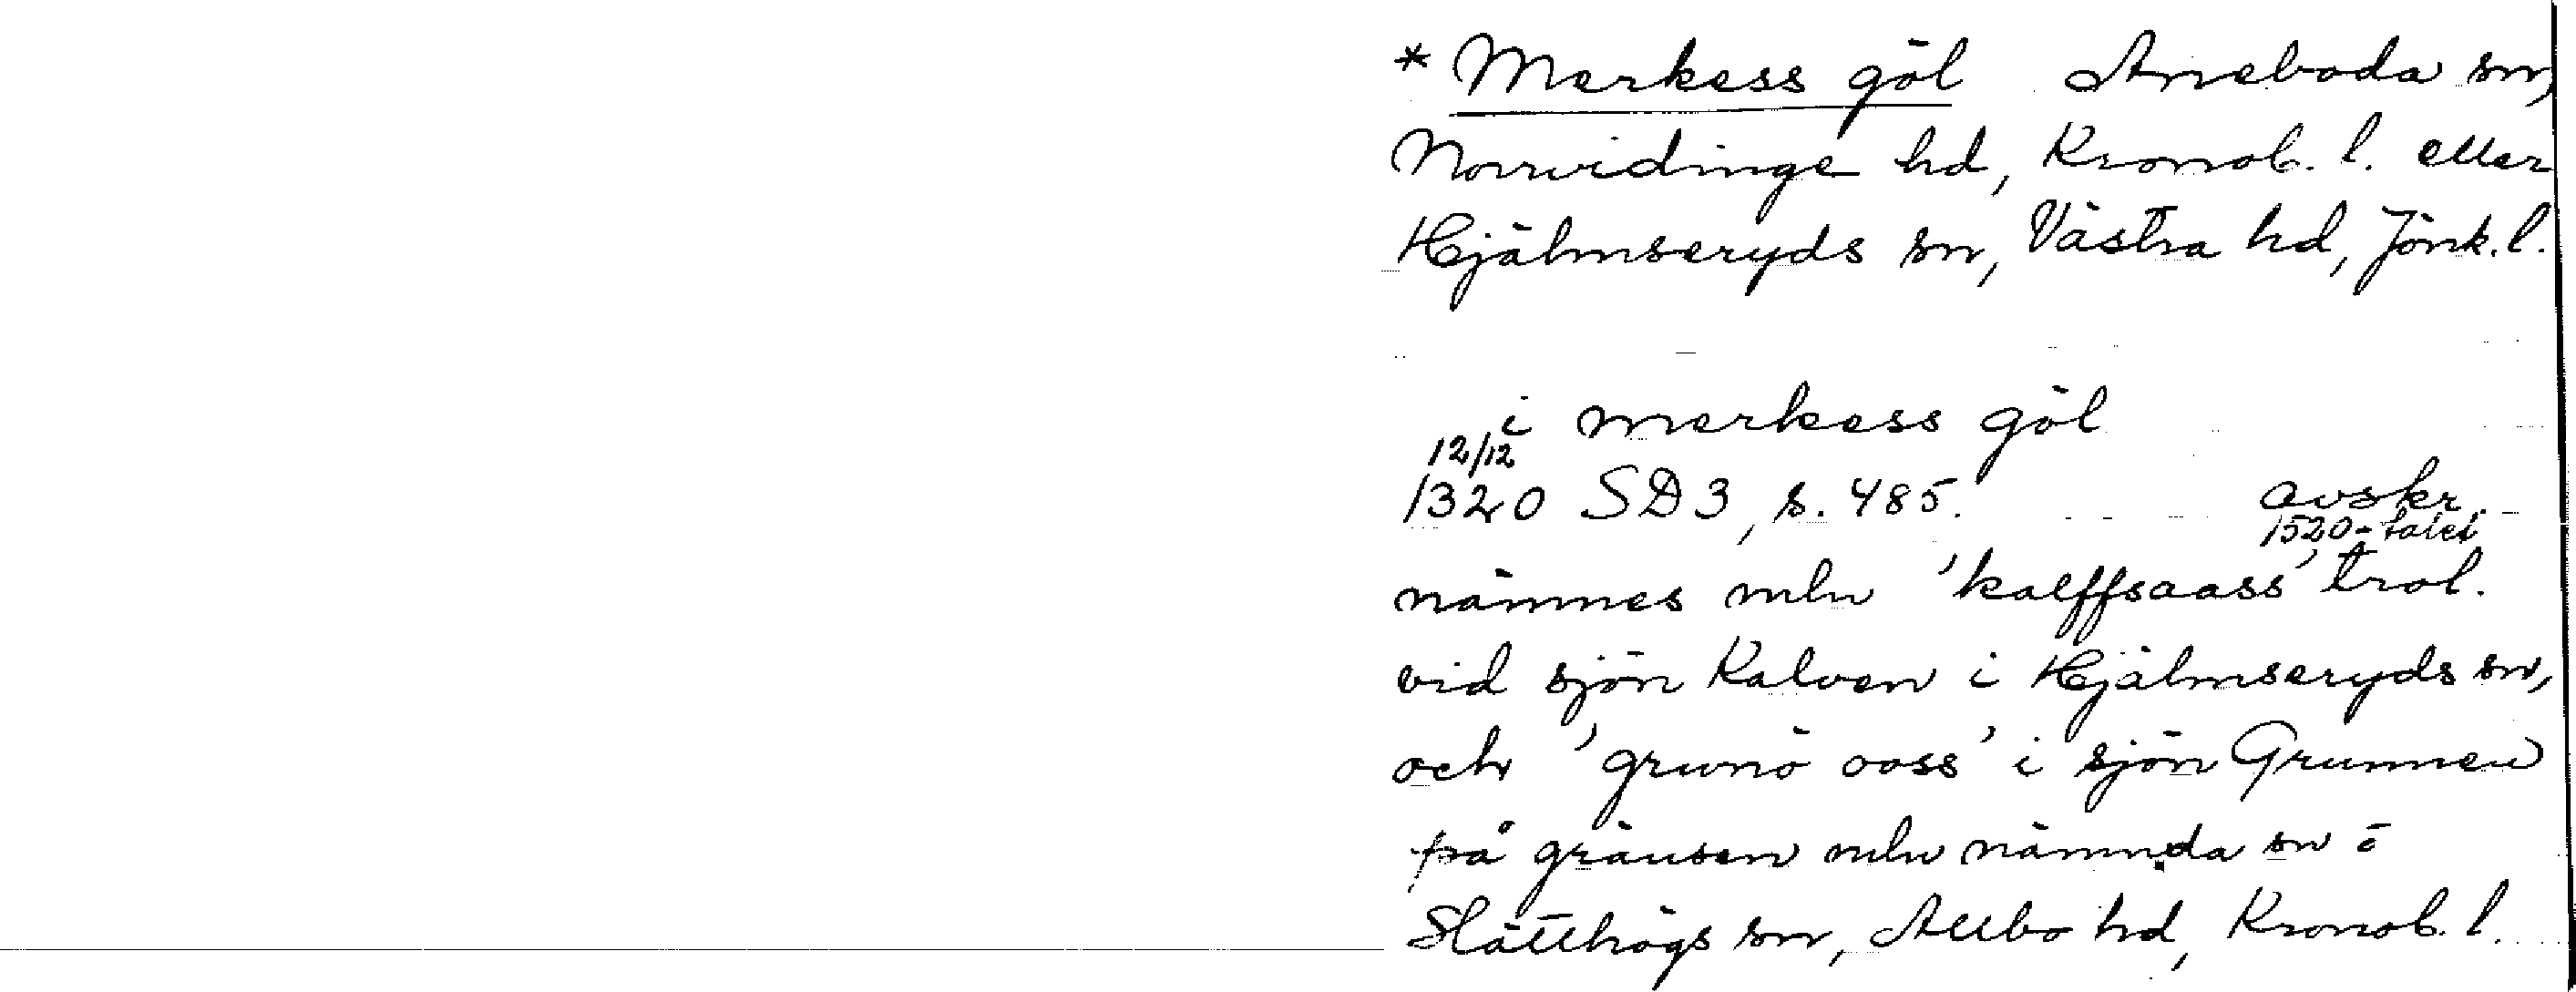 * Merkess göl Aneboda sn,
Norrvidinge hd, Kronob. l. eller
Hjälmseryds sn, Västra hd, Jönk. l.
i merkess göl
12/12
1320 SD 3, s. 485. avskr.
1520-talet
nämnes mln 'kalffsaass' trol.
vid sjön Kalven i Hjälmseryds sn,
och 'grunö ooss' i sjön Grunnen
på gränsen mln nämnda sn o
Slätthögs sn, Allbo hd, Kronob. l.